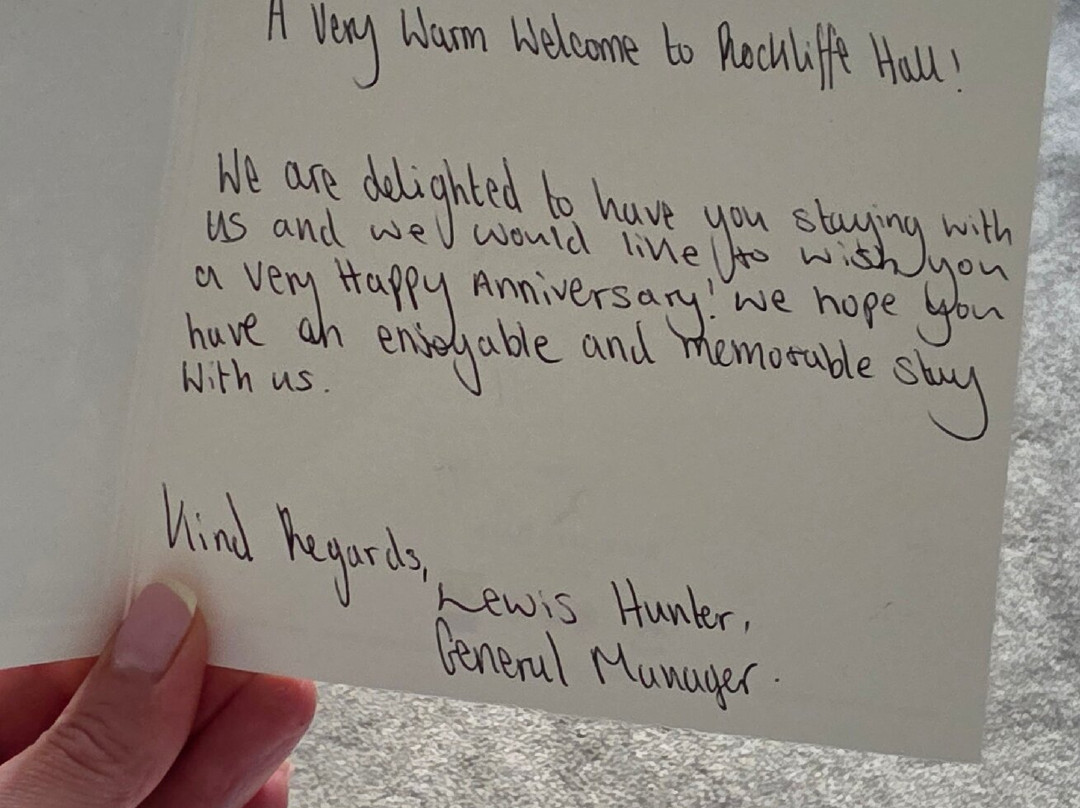 A Very Warm Welcome to Rockliffe Hall!
We are delighted to have you staying with
us and we would like to wish you
a very Happy Anniversary! We hope you
have an enjoyable and memorable stay
With us.
Kind Regards,
Lewis Hunter,
General Manager.